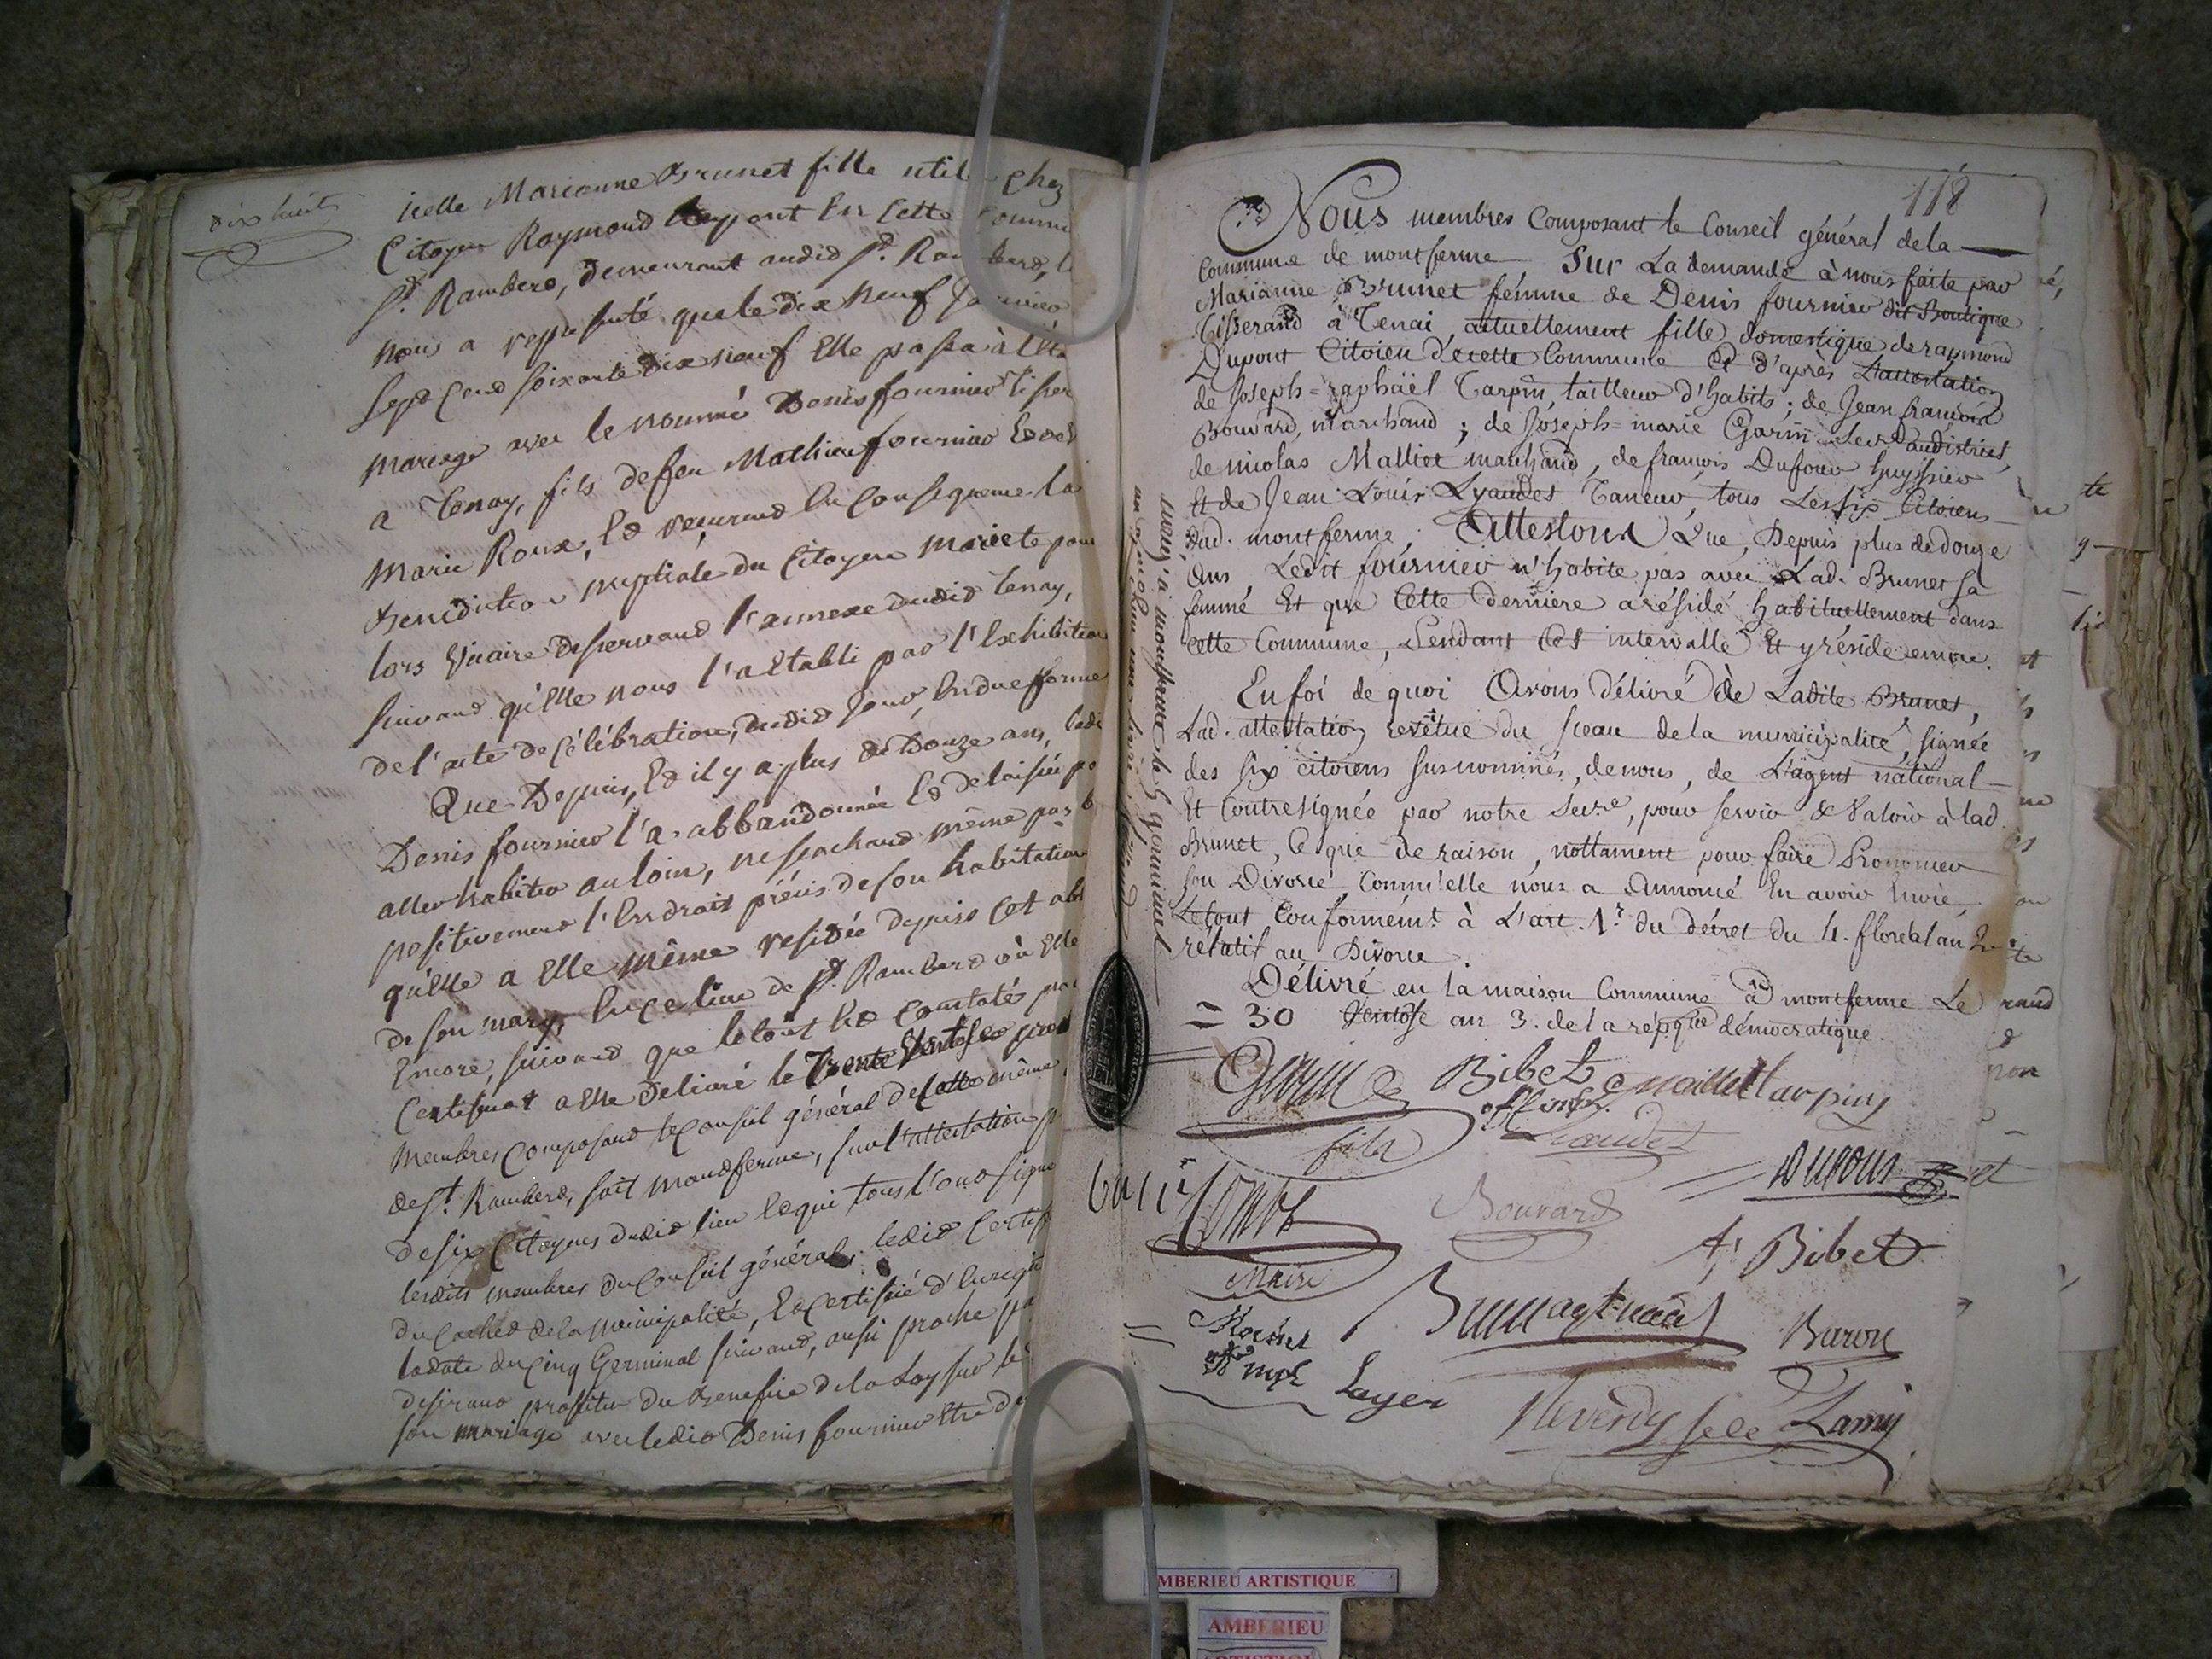 dix huit
icelle Marianne Brunet fille utile chez
Citoyen Raymond Dupont En Cette Commu
St. Rambert, demeurant audid St. Rambert,
nous a représenté que le dix neuf Janvier
Sept Cend soixante dix neuf Elle passa à l'
mariage avec le nommé Denis fournier Tisser
a Tenay, fils de feu Mathieu fournier Et de
Marie Roux, Ed reçurend En Conséquence la
Benediction nuptiale du Citoyen
lors Vicaire desservand l'annexe dudid Tenay,
suivand qu'Elle nous l'a Etabli par l'Exhibition
de l'acte de Célébration, dudid jour, En due forme
Que Depuis, Ed il y a plus de Douze ans, ledi
Denis fournier l'a abbandonnée Ed delaissée po
aller habiter au loin, ne sachand même pas
positivemend l'Endroit précis de son habitation
qu'Elle a Elle même residée depuis Cet abs
de son mary, En ce lieu de St. Rambert où Elle
Encore, suivand que le tout Est Constaté par
Certificat a Elle Delivré le Trente Ventose
Membres Composand le Conseil général de Cette même
de St. Rambert, soit Montferme, sur l'attestation
de six Citoyens dudid lieu Lequi tous l'ont signé
lesdits membres du Conseil général, ledid Certif
du Cachet de la municipalité, Et Certifié d'Enregis
la date du Cinq Germinal suivand, aussi
desirand profiter du Benefice de la Loy sur le
son mariage avec ledid Denis fournier Etre
118
Nous membres Composant le Conseil général de la
Commune de montferme Sur La demande à nous faite par
Marianne Brunet fémme de Denis fournier dit Boutique
Tisserand à Tenai, actuellement fille domestique de raÿmond
Dupont Citoien d'ecette Commune Et d'après L'attestation
de Joseph=raphaël Tarpin, tailleur d'habits ; de Jean françois
Bouvard, marchand ; de Joseph=marie Garin Secre. au district,
de nicolas Malliet marchand, de françois Dufour huissier
Et de Jean Louis Lyaudet Taneur, tous Les six Citoiens
dud. montferme, Attestons Que, Depuis plus de douze
Ans Ledit fournier n'habite pas avec Lad. Brunet sa
femme Et que Cette dernière a résidé habituellement dans
Cette Commune, Pendant Cet intervalle Et y réside encore.
En foi de quoi Avons Délivré à Ladite Brunet,
Lad. attestation revêtue du sceau de la municipalité, signée
des six citoiens susnommés, de nous, de L'agent national
Et Contresignée par notre Secre, pour servir & Valoir à lad.
Brunet, Ce que de raison, nottament pour faire Prononcer
son Divorce, Comm'elle nous a Annoncé En avoir Envie,
Le tout Conformémt à L'art. 1r du décret du 4. floréal an 2
rélatif au Divorce.
Délivré en la maison Commune à montferme Le
= 30 Ventôse an 3. de la répque démocratique.
Garin
fils
Bibet
off. mpl.
Malliet
tarpin
Liaudet
Dufour
Bouvard
Maire
Bibet
Brun agt. naal
Baron
mpl
Layer
Reverdy secre
Lamy
MBERIEU ARTISTIQUE
AMBERIEU